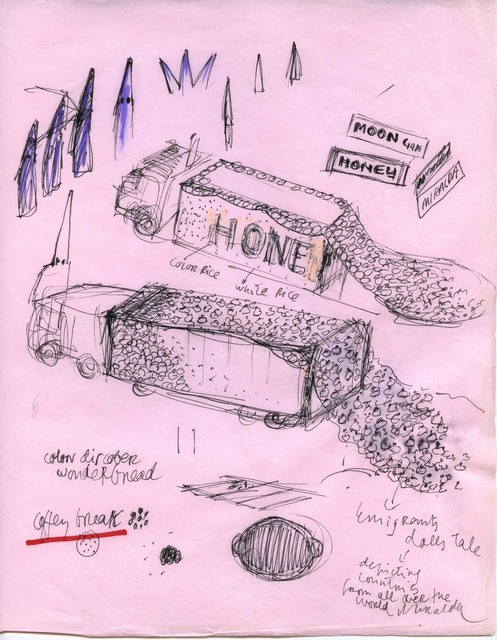 MOON
HONEY
MIRALDA
HONEY
COLOR RICE
WHITE RICE
color discover
wonderbread
coffey break
Emigrants
dolls Tale
depicting
countries
from all over the
world Miralda